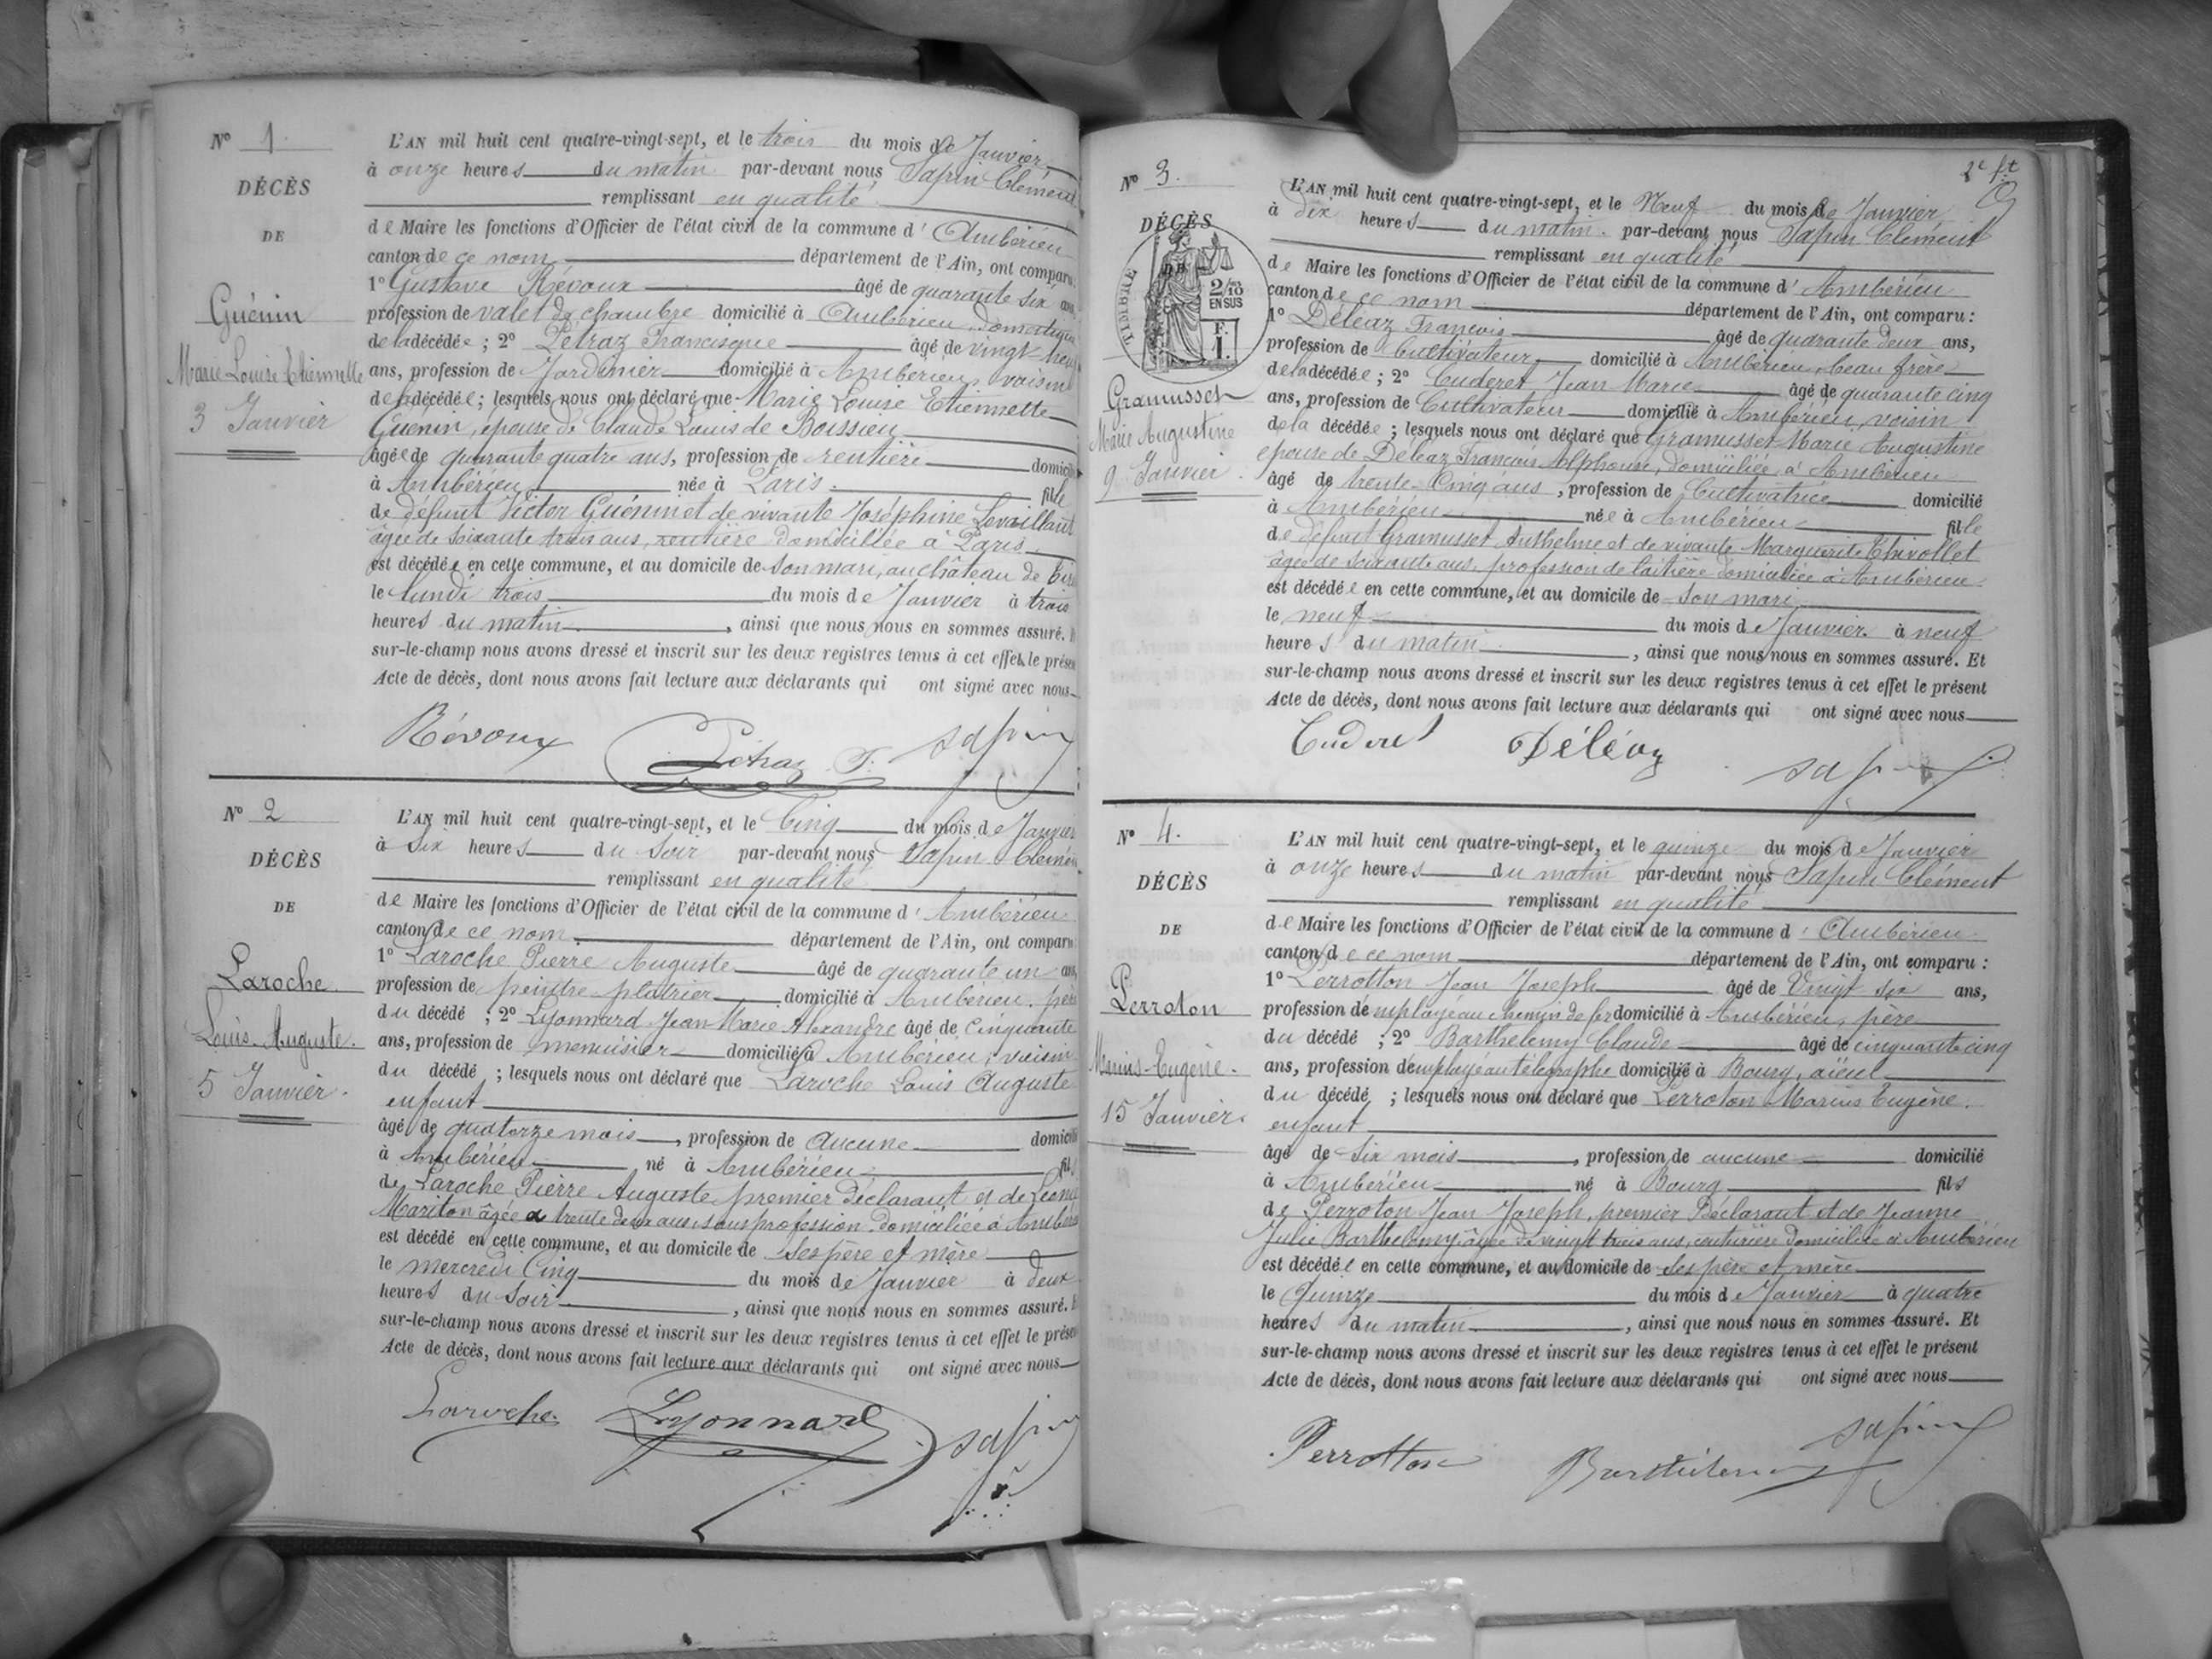 N° 1.
DÉCÈS
DE
Guénin
Marie Louise Etiennette
3 Janvier
L'AN mil huit cent quatre-vingt-sept, et le trois du mois de Janvier
à onze heures du matin par-devant nous Sapin Clément
remplissant en qualité
de Maire les fonctions d'Officier de l'état civil de la commune d' Ambérieu
canton de ce nom département de l'Ain, ont comparu:
1° Gustave Révoux âgé de quarante six ans
profession de valet de chambre domicilié à Ambérieu, domestique
de la décédée ; 2° Pétraz Francisque âgé de vingt-neuf
ans, profession de Jardinier domicilié à Ambérieu, voisin
de la décédée ; lesquels nous ont déclaré que Marie Louise Etiennette
Guénin, épouse de Claude Louis de Boissieu
âgée de quarante quatre ans, profession de rentière domicilié
à Ambérieu née à Paris fille
de défunt Victor Guénin et de vivante Joséphine Levaillant
âgée de soixante trois ans, rentière domiciliée à Paris
est décédée en cette commune, et au domicile de son mari, au château de
le lundi trois du mois de Janvier à trois
heures du matin, ainsi que nous nous en sommes assuré.
sur-le-champ nous avons dressé et inscrit sur les deux registres tenus à cet effet le présent
Acte de décès, dont nous avons fait lecture aux déclarants qui ont signé avec nous
Révoux Pétraz F. Sapin
N° 2
DÉCÈS
DE
Laroche
Louis Auguste.
5 Janvier.
L'AN mil huit cent quatre-vingt-sept, et le Cinq du mois de Janvier
à Six heures du soir par-devant nous Sapin Clément
remplissant en qualité
de Maire les fonctions d'Officier de l'état civil de la commune d' Ambérieu
canton de ce nom département de l'Ain, ont comparu
1° Laroche Pierre Auguste âgé de quarante un ans,
profession de peintre plâtrier domicilié à Ambérieu, père
du décédé ; 2° Lyonnard Jean Marie Alexandre âgé de Cinquante
ans, profession de menuisier domicilié à Ambérieu, voisin
du décédé ; lesquels nous ont déclaré que Laroche Louis Auguste
enfant
âgé de quatorze mois, profession de aucune domicilié
à Ambérieu né à Ambérieu fils
de Laroche Pierre Auguste premier déclarant et de
Mariton âgée de trente deux ans, sans profession domiciliée à Ambérieu
est décédé en cette commune, et au domicile de Ses père et mère
le mercredi Cinq du mois de Janvier à deux
heures du soir, ainsi que nous nous en sommes assuré.
sur-le-champ nous avons dressé et inscrit sur les deux registres tenus à cet effet le présent
Acte de décès, dont nous avons fait lecture aux déclarants qui ont signé avec nous
Laroche Lyonnard Sapin
2e ft
N° 3.
DÉCÈS
DE
TIMBRE
2/10
EN SUS
F.
1.
Gramusset
Marie Augustine
9 Janvier.
L'AN mil huit cent quatre-vingt-sept, et le Neuf du mois de Janvier
à dix heures du matin. par-devant nous Sapin Clément
remplissant en qualité
de Maire les fonctions d'Officier de l'état civil de la commune d' Ambérieu
canton de ce nom département de l'Ain, ont comparu :
1° Déléaz François âgé de quarante deux ans,
profession de Cultivateur domicilié à Ambérieu, beau frère
de la décédée ; 2° Cuderet Jean Marie âgé de quarante cinq
ans, profession de Cultivateur domicilié à Ambérieu, voisin
de la décédée ; lesquels nous ont déclaré que Gramusset Marie Augustine
épouse de Déléaz François Alphonse, domiciliée à Ambérieu
âgé de trente Cinq ans, profession de Cultivatrice domicilié
à Ambérieu née à Ambérieu fille
de défunt Gramusset Anthelme et de vivante Marguerite Chivollet
âgée de soixante ans, profession de laitière domiciliée à Ambérieu
est décédée en cette commune, et au domicile de son mari
le neuf du mois de Janvier à neuf
heures du matin, ainsi que nous nous en sommes assuré. Et
sur-le-champ nous avons dressé et inscrit sur les deux registres tenus à cet effet le présent
Acte de décès, dont nous avons fait lecture aux déclarants qui ont signé avec nous
Cuderet Déléaz Sapin
N° 4.
DÉCÈS
DE
Perroton
Marius-Eugène.
15 Janvier.
L'AN mil huit cent quatre-vingt-sept, et le quinze du mois de Janvier
à onze heures du matin par-devant nous Sapin Clément
remplissant en qualité
de Maire les fonctions d'Officier de l'état civil de la commune d' Ambérieu
canton de ce nom département de l'Ain, ont comparu :
1° Perrotton Jean Joseph âgé de Vingt six ans,
profession de employé au chemin de fer domicilié à Ambérieu, père
du décédé ; 2° Barthelemy Claude âgé de cinquante cinq
ans, profession de employé au télégraphe domicilié à Bourg, aïeul
du décédé ; lesquels nous ont déclaré que Perroton Marius Eugène.
enfant
âgé de six mois, profession de aucune domicilié
à Ambérieu né à Bourg fils
de Perroton Jean Joseph, premier Déclarant et de Jeanne
Julie Barthelemy âgée de vingt trois ans, couturière domiciliée à Ambérieu
est décédé en cette commune, et au domicile de ses père et mère
le Quinze du mois de Janvier à quatre
heures du matin, ainsi que nous nous en sommes assuré. Et
sur-le-champ nous avons dressé et inscrit sur les deux registres tenus à cet effet le présent
Acte de décès, dont nous avons fait lecture aux déclarants qui ont signé avec nous
Perrotton Barthelemy Sapin